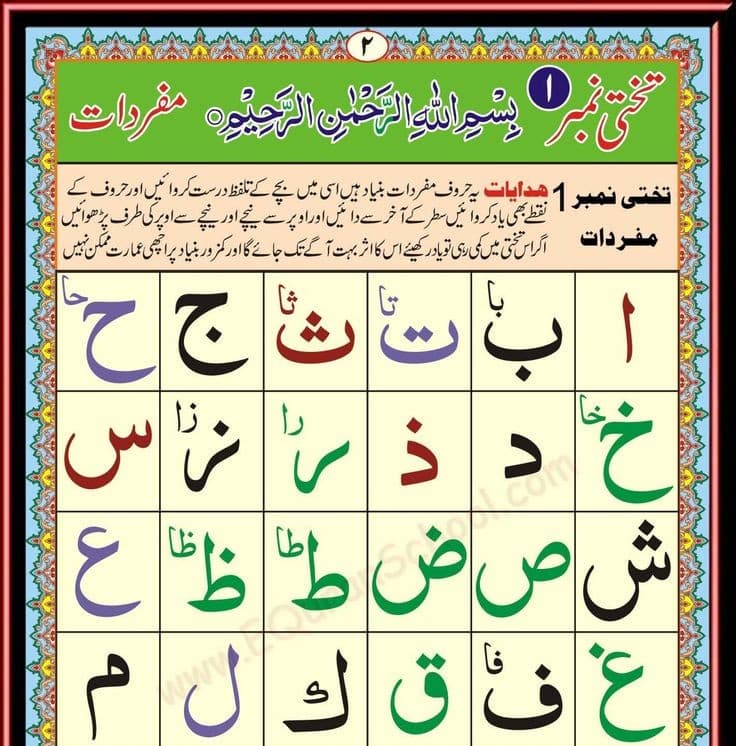 ۲
تختی نمبر ۱ بِسْمِ اللّٰهِ الرَّحْمٰنِ الرَّحِيْمِ مفردات
تختی نمبر 1 مفردات
ھدایات یہ حروف مفردات بنیاد ہیں اسی میں بچے کے تلفظ درست کروائیں اور حروف کے
نقطے بھی یاد کروائیں سطر کے آخر سے دائیں اور اوپر سے نیچے اور نیچے سے اوپر کی طرف پڑھوائیں
اگر اس تختی میں کمی رہی تو یاد رکھیئے اس کا اثر بہت آگے تک جائے گا اور کمزور بنیاد پر اچھی عمارت ممکن نہیں
ا ب با ت تا ث ثا ج ح حا
خ خا د ذ ر را ز زا س
ش ص ض ط طا ظ ظا ع
غ ف فا ق ك ل م
www.EQuranSchool.com